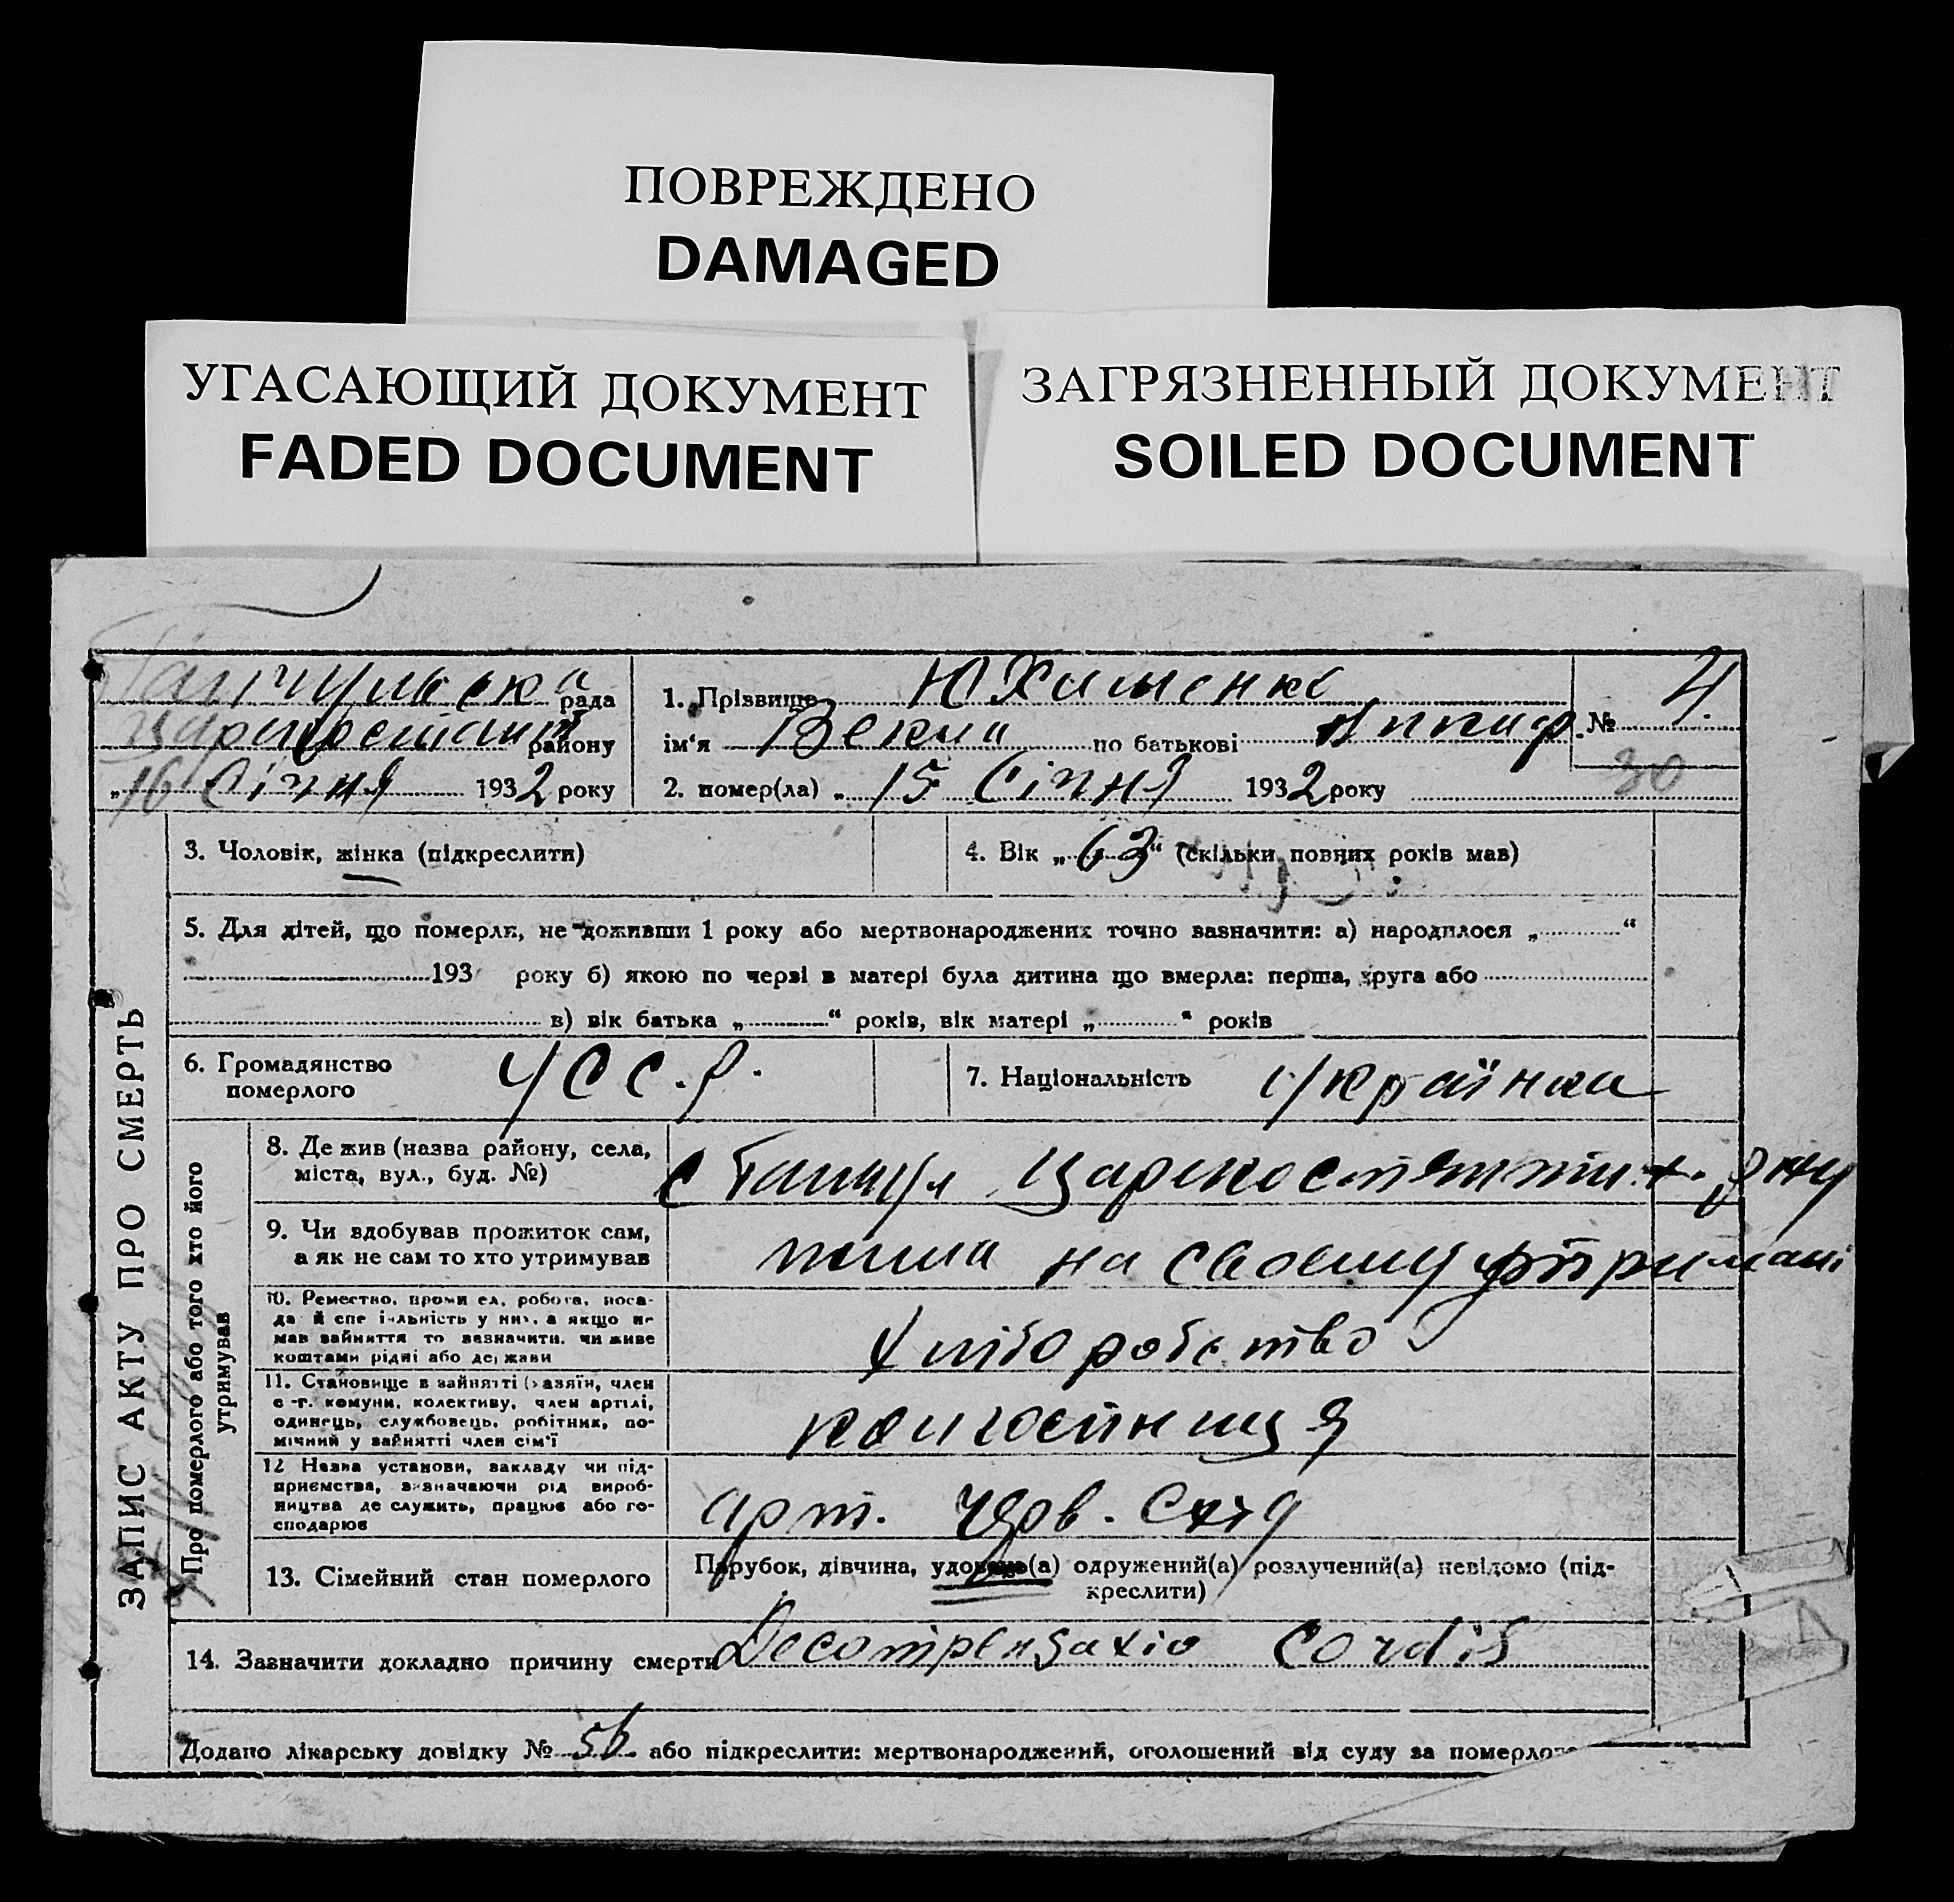 ПОВРЕЖДЕНО
DAMAGED
УГАСАЮЩИЙ ДОКУМЕНТ
FADED DOCUMENT
ЗАГРЯЗНЕННЫЙ ДОКУМЕНТ
SOILED DOCUMENT
ЗАПИС АКТУ ПРО СМЕРТЬ
рада
району
„16 Січня 1932 року
1. Прізвище Юхименко
ім'я по батькові
2. помер(ла) „15 Січня 1932 року
№ 4
30
3. Чоловік, жінка (підкреслити)
4. Вік „63“ (скільки повних років мав)
5. Для дітей, що померли, не доживши 1 року або мертвонароджених точно зазначити: а) народилося „ “
193 року б) якою по черзі в матері була дитина що вмерла: перша, друга або
в) вік батька „ “ років, вік матері „ “ років
6. Громадянство
померлого
УССР.
7. Національність Українка
Про померлого або того хто його
утримував
8. Де жив (назва району, села,
міста, вул., буд. №)
9. Чи здобував прожиток сам,
а як не сам то хто утримував
на своєму утримані
10. Ремество, промисел, робота, поса-
да й спеціяльність у них, а якщо не
мав зайняття то зазначити, чи живе
коштами рідні або держави
Хліборобство
11. Становище в зайнятті (хазяїн, член
с.-г. комуни, колективу, член артілі,
одинець, службовець, робітник, по-
мічний у зайнятті член сім'ї
колгоспниця
12. Назва установи, закладу чи під-
приємства, зазначаючи рід вироб-
ництва де служить, працює або го-
сподарює
арт. Черв.
13. Сімейний стан померлого
Парубок, дівчина, удовець(а) одружений(а) розлучений(а) невідомо (під-
креслити)
14. Зазначити докладно причину смерти Decompensatio Cordis
Додано лікарську довідку № 56 або підкреслити: мертвонароджений, оголошений від суду за